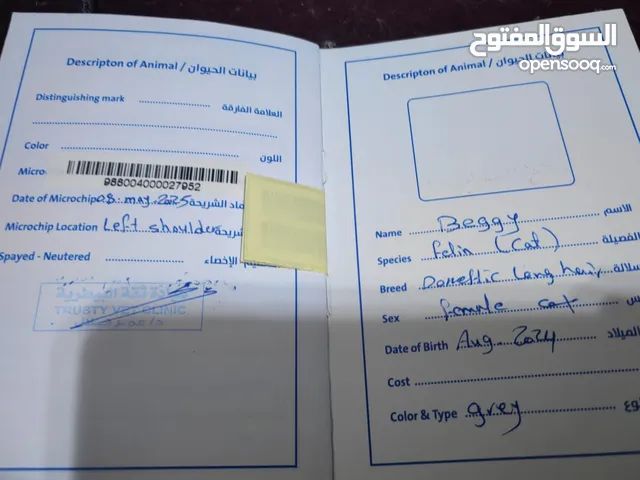 السوق المفتوح
opensooq.com
Descripton of Animal / بيانات الحيوان
Distinguishing mark العلامة الفارقة
Color اللون
Micro
988004000027952
Date of Microchip 08. may. 2025 الشريحة
Microchip Location Left shoulder
Spayed - Neutered الإخصاء
TRUSTY VET CLINIC
Descripton of Animal / بيانات الحيوان
Name Beggy الاسم
Species felin (Cat) الفصيلة
Breed Domestic Long hair
Sex female cat
Date of Birth Aug. 2024 الميلاد
Cost
Color & Type grey